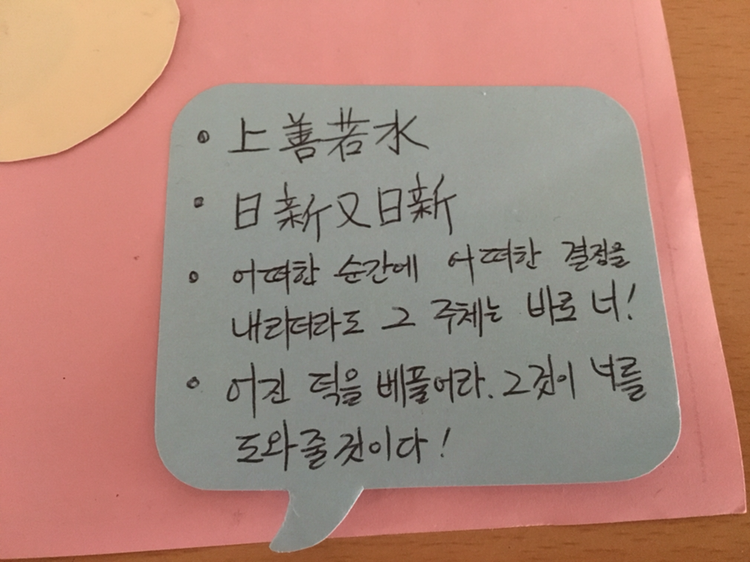 • 上善若水
• 日新又日新
• 어떠한 순간에 어떠한 결정을
내리더라도 그 주체는 바로 너!
• 어진 덕을 베풀어라. 그것이 너를
도와줄것이다!